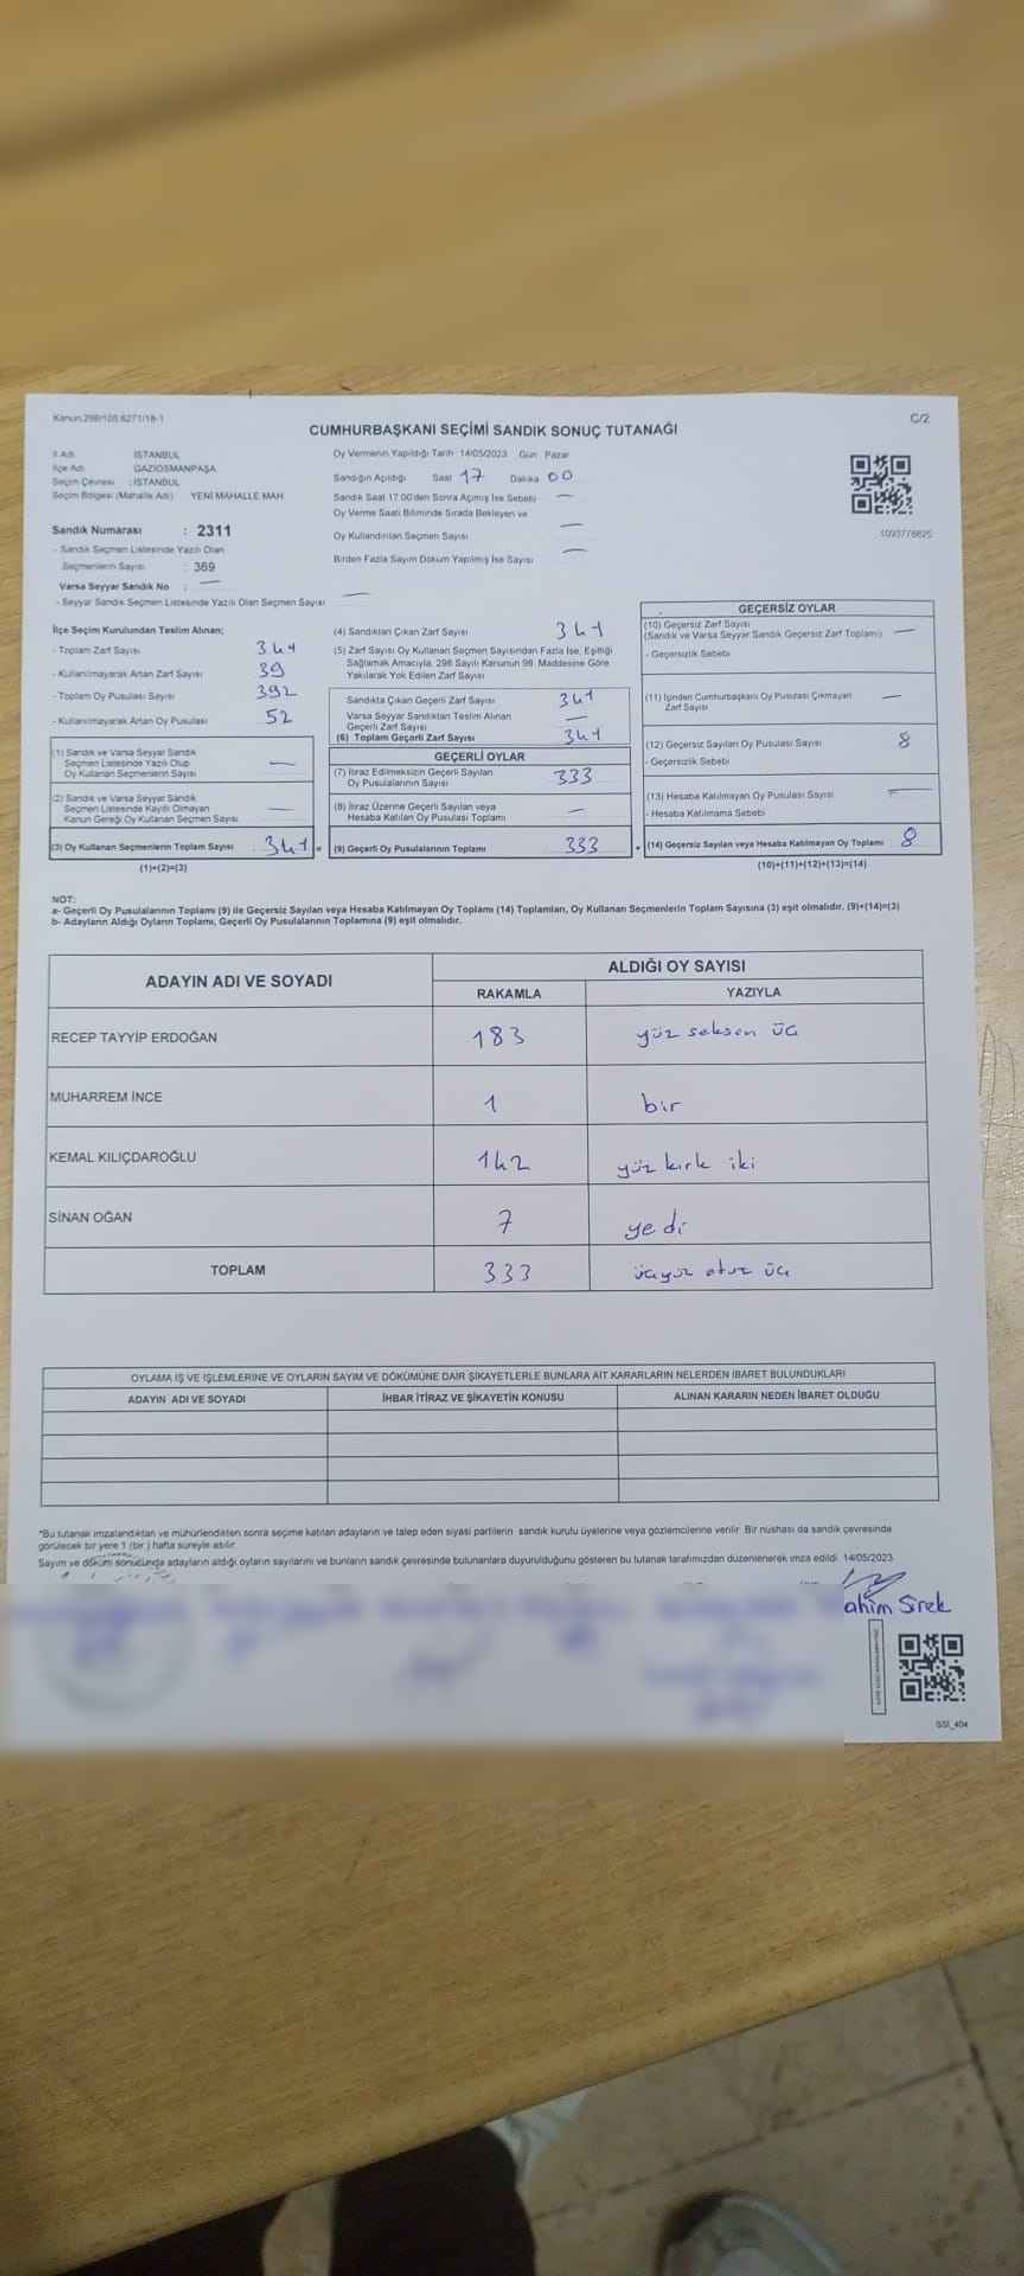 Kanun:298/105.6271/18-1
C/2
CUMHURBAŞKANI SEÇİMİ SANDIK SONUÇ TUTANAĞI
İl Adı İSTANBUL
İlçe Adı GAZİOSMANPAŞA
Seçim Çevresi : İSTANBUL
Seçim Bölgesi (Mahalle Adı) YENİ MAHALLE MAH.
Sandık Numarası : 2311
- Sandık Seçmen Listesinde Yazılı Olan
Seçmenlerin Sayısı : 369
Varsa Seyyar Sandık No : —
- Seyyar Sandık Seçmen Listesinde Yazılı Olan Seçmen Sayısı —
Oy Vermenin Yapıldığı Tarih 14/05/2023 Gün Pazar
Sandığın Açıldığı Saat 17 Dakika 00
Sandık Saat 17.00'den Sonra Açılmış İse Sebebi —
Oy Verme Saati Bitiminde Sırada Bekleyen ve
Oy Kullandırılan Seçmen Sayısı —
Birden Fazla Sayım Döküm Yapılmış İse Sayısı —
İlçe Seçim Kurulundan Teslim Alınan;
- Toplam Zarf Sayısı
- Kullanılmayarak Artan Zarf Sayısı 39
- Toplam Oy Pusulası Sayısı 392
- Kullanılmayarak Artan Oy Pusulası 52
(1) Sandık ve Varsa Seyyar Sandık
Seçmen Listesinde Yazılı Olup
Oy Kullanan Seçmenlerin Sayısı —
(2) Sandık ve Varsa Seyyar Sandık
Seçmen Listesinde Kayıtlı Olmayan
Kanun Gereği Oy Kullanan Seçmen Sayısı —
(3) Oy Kullanan Seçmenlerin Toplam Sayısı : 341 =
(1)+(2)=(3)
(4) Sandıktan Çıkan Zarf Sayısı 341
(5) Zarf Sayısı Oy Kullanan Seçmen Sayısından Fazla İse, Eşitliği
Sağlamak Amacıyla, 298 Sayılı Kanunun 98. Maddesine Göre
Yakılarak Yok Edilen Zarf Sayısı
Sandıkta Çıkan Geçerli Zarf Sayısı 341
Varsa Seyyar Sandıktan Teslim Alınan
Geçerli Zarf Sayısı —
(6) Toplam Geçerli Zarf Sayısı 341
GEÇERLİ OYLAR
(7) İtiraz Edilmeksizin Geçerli Sayılan
Oy Pusulalarının Sayısı 333
(8) İtiraz Üzerine Geçerli Sayılan veya
Hesaba Katılan Oy Pusulası Toplamı —
(9) Geçerli Oy Pusulalarının Toplamı 333
GEÇERSİZ OYLAR
(10) Geçersiz Zarf Sayısı
(Sandık ve Varsa Seyyar Sandık Geçersiz Zarf Toplamı) —
- Geçersizlik Sebebi
(11) İçinden Cumhurbaşkanı Oy Pusulası Çıkmayan
Zarf Sayısı —
(12) Geçersiz Sayılan Oy Pusulası Sayısı 8
- Geçersizlik Sebebi
(13) Hesaba Katılmayan Oy Pusulası Sayısı —
- Hesaba Katılmama Sebebi
+ (14) Geçersiz Sayılan veya Hesaba Katılmayan Oy Toplamı 8
(10)+(11)+(12)+(13)=(14)
NOT:
a- Geçerli Oy Pusulalarının Toplamı (9) ile Geçersiz Sayılan veya Hesaba Katılmayan Oy Toplamı (14) Toplamları, Oy Kullanan Seçmenlerin Toplam Sayısına (3) eşit olmalıdır. (9)+(14)=(3)
b- Adayların Aldığı Oyların Toplamı, Geçerli Oy Pusulalarının Toplamına (9) eşit olmalıdır.
ADAYIN ADI VE SOYADI
ALDIĞI OY SAYISI
RAKAMLA YAZIYLA
RECEP TAYYİP ERDOĞAN 183 yüz seksen üç
MUHARREM İNCE 1 bir
KEMAL KILIÇDAROĞLU 142 yüz kırk iki
SİNAN OĞAN 7 yedi
TOPLAM 333 üçyüz otuz üç
OYLAMA İŞ VE İŞLEMLERİNE VE OYLARIN SAYIM VE DÖKÜMÜNE DAİR ŞİKAYETLERLE BUNLARA AİT KARARLARIN NELERDEN İBARET BULUNDUKLARI
ADAYIN ADI VE SOYADI İHBAR İTİRAZ VE ŞİKAYETİN KONUSU ALINAN KARARIN NEDEN İBARET OLDUĞU
*Bu tutanak imzalandıktan ve mühürlendikten sonra seçime katılan adayların ve talep eden siyasi partilerin sandık kurulu üyelerine veya gözlemcilerine verilir. Bir nüshası da sandık çevresinde
görülecek bir yere 1 (bir) hafta süreyle asılır.
Sayım ve döküm sonucunda adayların aldığı oyların sayılarını ve bunların sandık çevresinde bulunanlara duyurulduğunu gösteren bu tutanak tarafımızdan düzenlenerek imza edildi. 14/05/2023
ahim Sirek